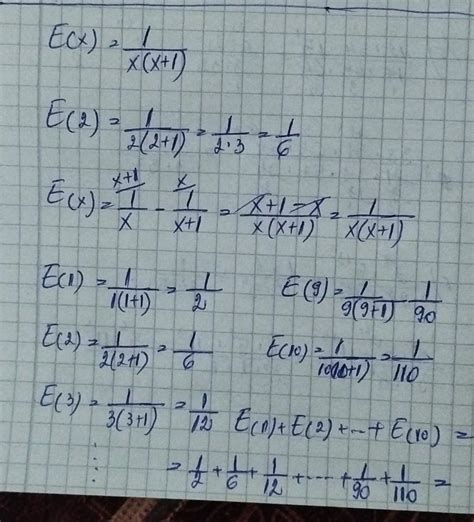 E(x) = 1/(x(x+1))
E(2) = 1/(2(2+1)) = 1/(2·3) = 1/6
x+1 x
E(x) = 1/x - 1/(x+1) = (x+1-x)/(x(x+1)) = 1/(x(x+1))
E(1) = 1/(1(1+1)) = 1/2
E(9) = 1/(9(9+1)) 1/90
E(2) = 1/(2(2+1)) = 1/6
E(10) = 1/(10(10+1)) = 1/110
E(3) = 1/(3(3+1)) = 1/12
E(1)+E(2)+...+E(10) =
= 1/2 + 1/6 + 1/12 + ... + 1/90 + 1/110 =